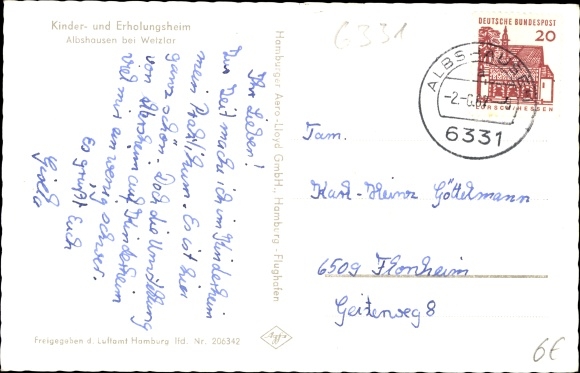 Kinder- und Erholungsheim
Albshausen bei Wetzlar
6331
DEUTSCHE BUNDESPOST
20
LORSCH/HESSEN
ALBSHAUSEN
-2.-6.67.-
6331
Ihr Lieben!
Zur Zeit mache ich im Kinderheim
mein Praktikum. Es ist hier
ganz schön. Doch die Umstellung
von Altersheim auf Kinderheim
viel mir ein wenig schwer.
Es grüßt Euch
Gisela
Hamburger Aero-Lloyd GmbH., Hamburg-Flughafen
Fam.
Karl-Heinz Göttelmann
6509 Flonheim
Geitenweg 8
Freigegeben d. Luftamt Hamburg lfd. Nr. 206342
6€